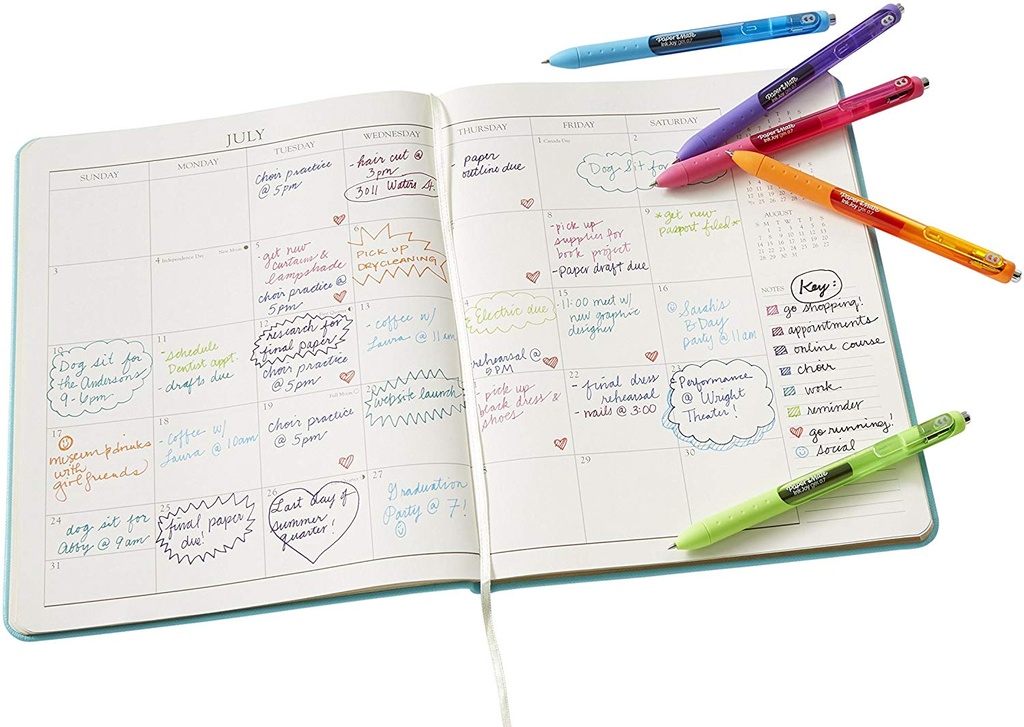 JULY
SUNDAY
MONDAY
TUESDAY
WEDNESDAY
THURSDAY
FRIDAY
SATURDAY
choir practice
@ 5pm
- hair cut @
3pm
3011 Waters St.
- paper
outline due
1 Canada Day
2
Dog Sit for
3
4 Independence Day
New Moon
5
- get new
curtains &
lampshade
choir practice @
5pm
6
PICK UP
DRYCLEANING
8
- pick up
supplies for
book project
- paper draft due
9
*get new
passport filed*
10
Dog sit for
the Andersons
9-6pm
11
- schedule
Dentist appt.
- drafts due
12
research for
final paper
choir practice
@ 5pm
13
- coffee w/
Laura @ 11am
Electric due
rehearsal @
5PM
15
- 11:00 meet w/
new graphic
designer
16
Sarah's
B-Day
party @ 11am
17
museum & drinks
with
girlfriends
18
- coffee w/
Laura @ 10am
19
Full Moon
choir practice
@ 5pm
20
website launch
- pick up
black dress &
shoes
22
- final dress
rehearsal
- nails @ 3:00
23
Performance
@ Wright
Theater!
24
dog sit for
Abby @ 9am
25
final paper
due!
26
Last day of
summer
quarter!
27
Graduation
Party @ 7!
29
30
31
AUGUST
S M T W T F S
NOTES
Key:
go shopping!
appointments
online course
choir
work
reminder
go running!
social
PAPER MATE
InkJoy gel 0.7
PAPER MATE
InkJoy gel 0.7
PAPER MATE
InkJoy gel 0.7
PAPER MATE
InkJoy gel 0.7